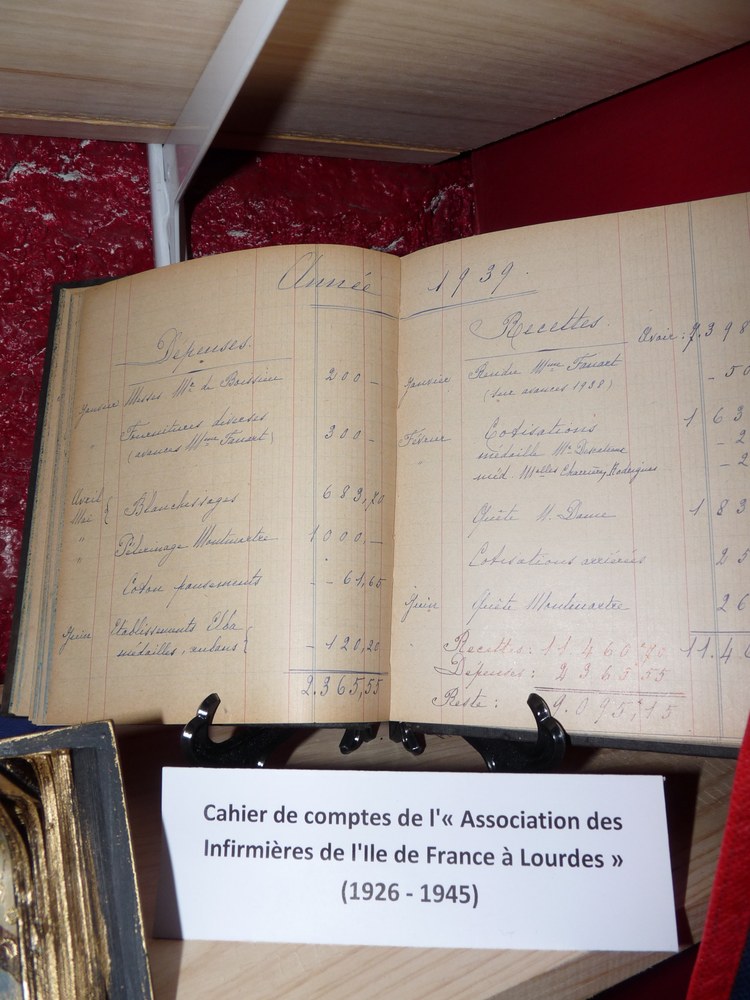 Année 1939.
Dépenses.
Janvier Messes Mr de Boissieu 200 -
" Fournitures diverses 300 -
(avances Mme Fanart)
Avril Mai { Blanchissages 683,70
" Pélerinage Montmartre 1000, -
" Coton pansements - - 61,65
Juin Etablissements Elba
médailles, rubans } - 120,20
2.365,55
Recettes. Avoir: 7.398
Janvier Rendu Mme Fanart - 50
(sur avances 1938)
Février Cotisations 1 63
" médaille Me - 2
méd. Melles - 2
Quête N. Dame 1 83
Cotisations arriérés 25
Juin Quête Montmartre 26
Recettes: 11.460,70 11.46
Dépenses: 2 365 55
Reste: 9.095,15
Cahier de comptes de l'« Association des
Infirmières de l'Ile de France à Lourdes »
(1926 - 1945)